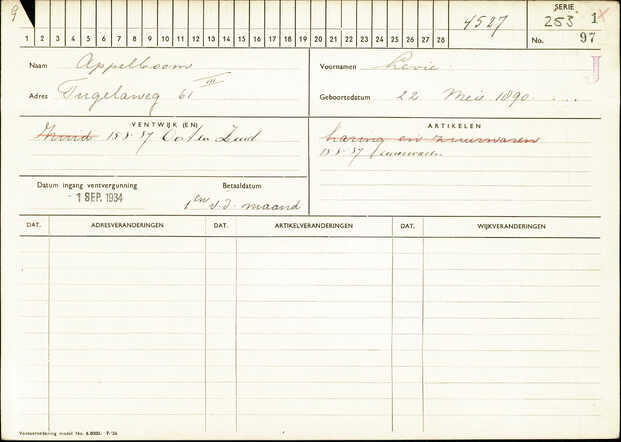 9
SERIE
4527 253 1x
1 2 3 4 5 6 7 8 9 10 11 12 13 14 15 16 17 18 19 20 21 22 23 24 25 26 27 28 No. 97
J
Naam Appelboom Voornamen Levie.
Adres Tugelaweg 61 III Geboortedatum 22 Mei 1890
VENTWIJK (EN) ARTIKELEN
Zuid 18 8 '37 Oost en Zuid haring en zuurwaren
18 8 '37 Zuurwaren
Datum ingang ventvergunning Betaaldatum
- 1 SEP. 1934 1en v.d. maand
DAT. ADRESVERANDERINGEN DAT. ARTIKELVERANDERINGEN DAT. WIJKVERANDERINGEN